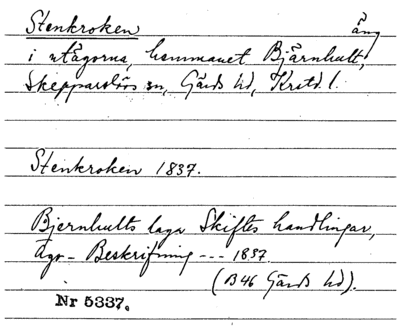 Stenkroken äng
i utägorna, hemmanet Bjärnhult,
Skepparslövs sn, Gärds hd, Krstd l.
Stenkroken 1837.
Bjernhults laga Skiftes handlingar,
Äge-Beskrifning --- 1837.
(B46 Gärds hd).
Nr 5337.